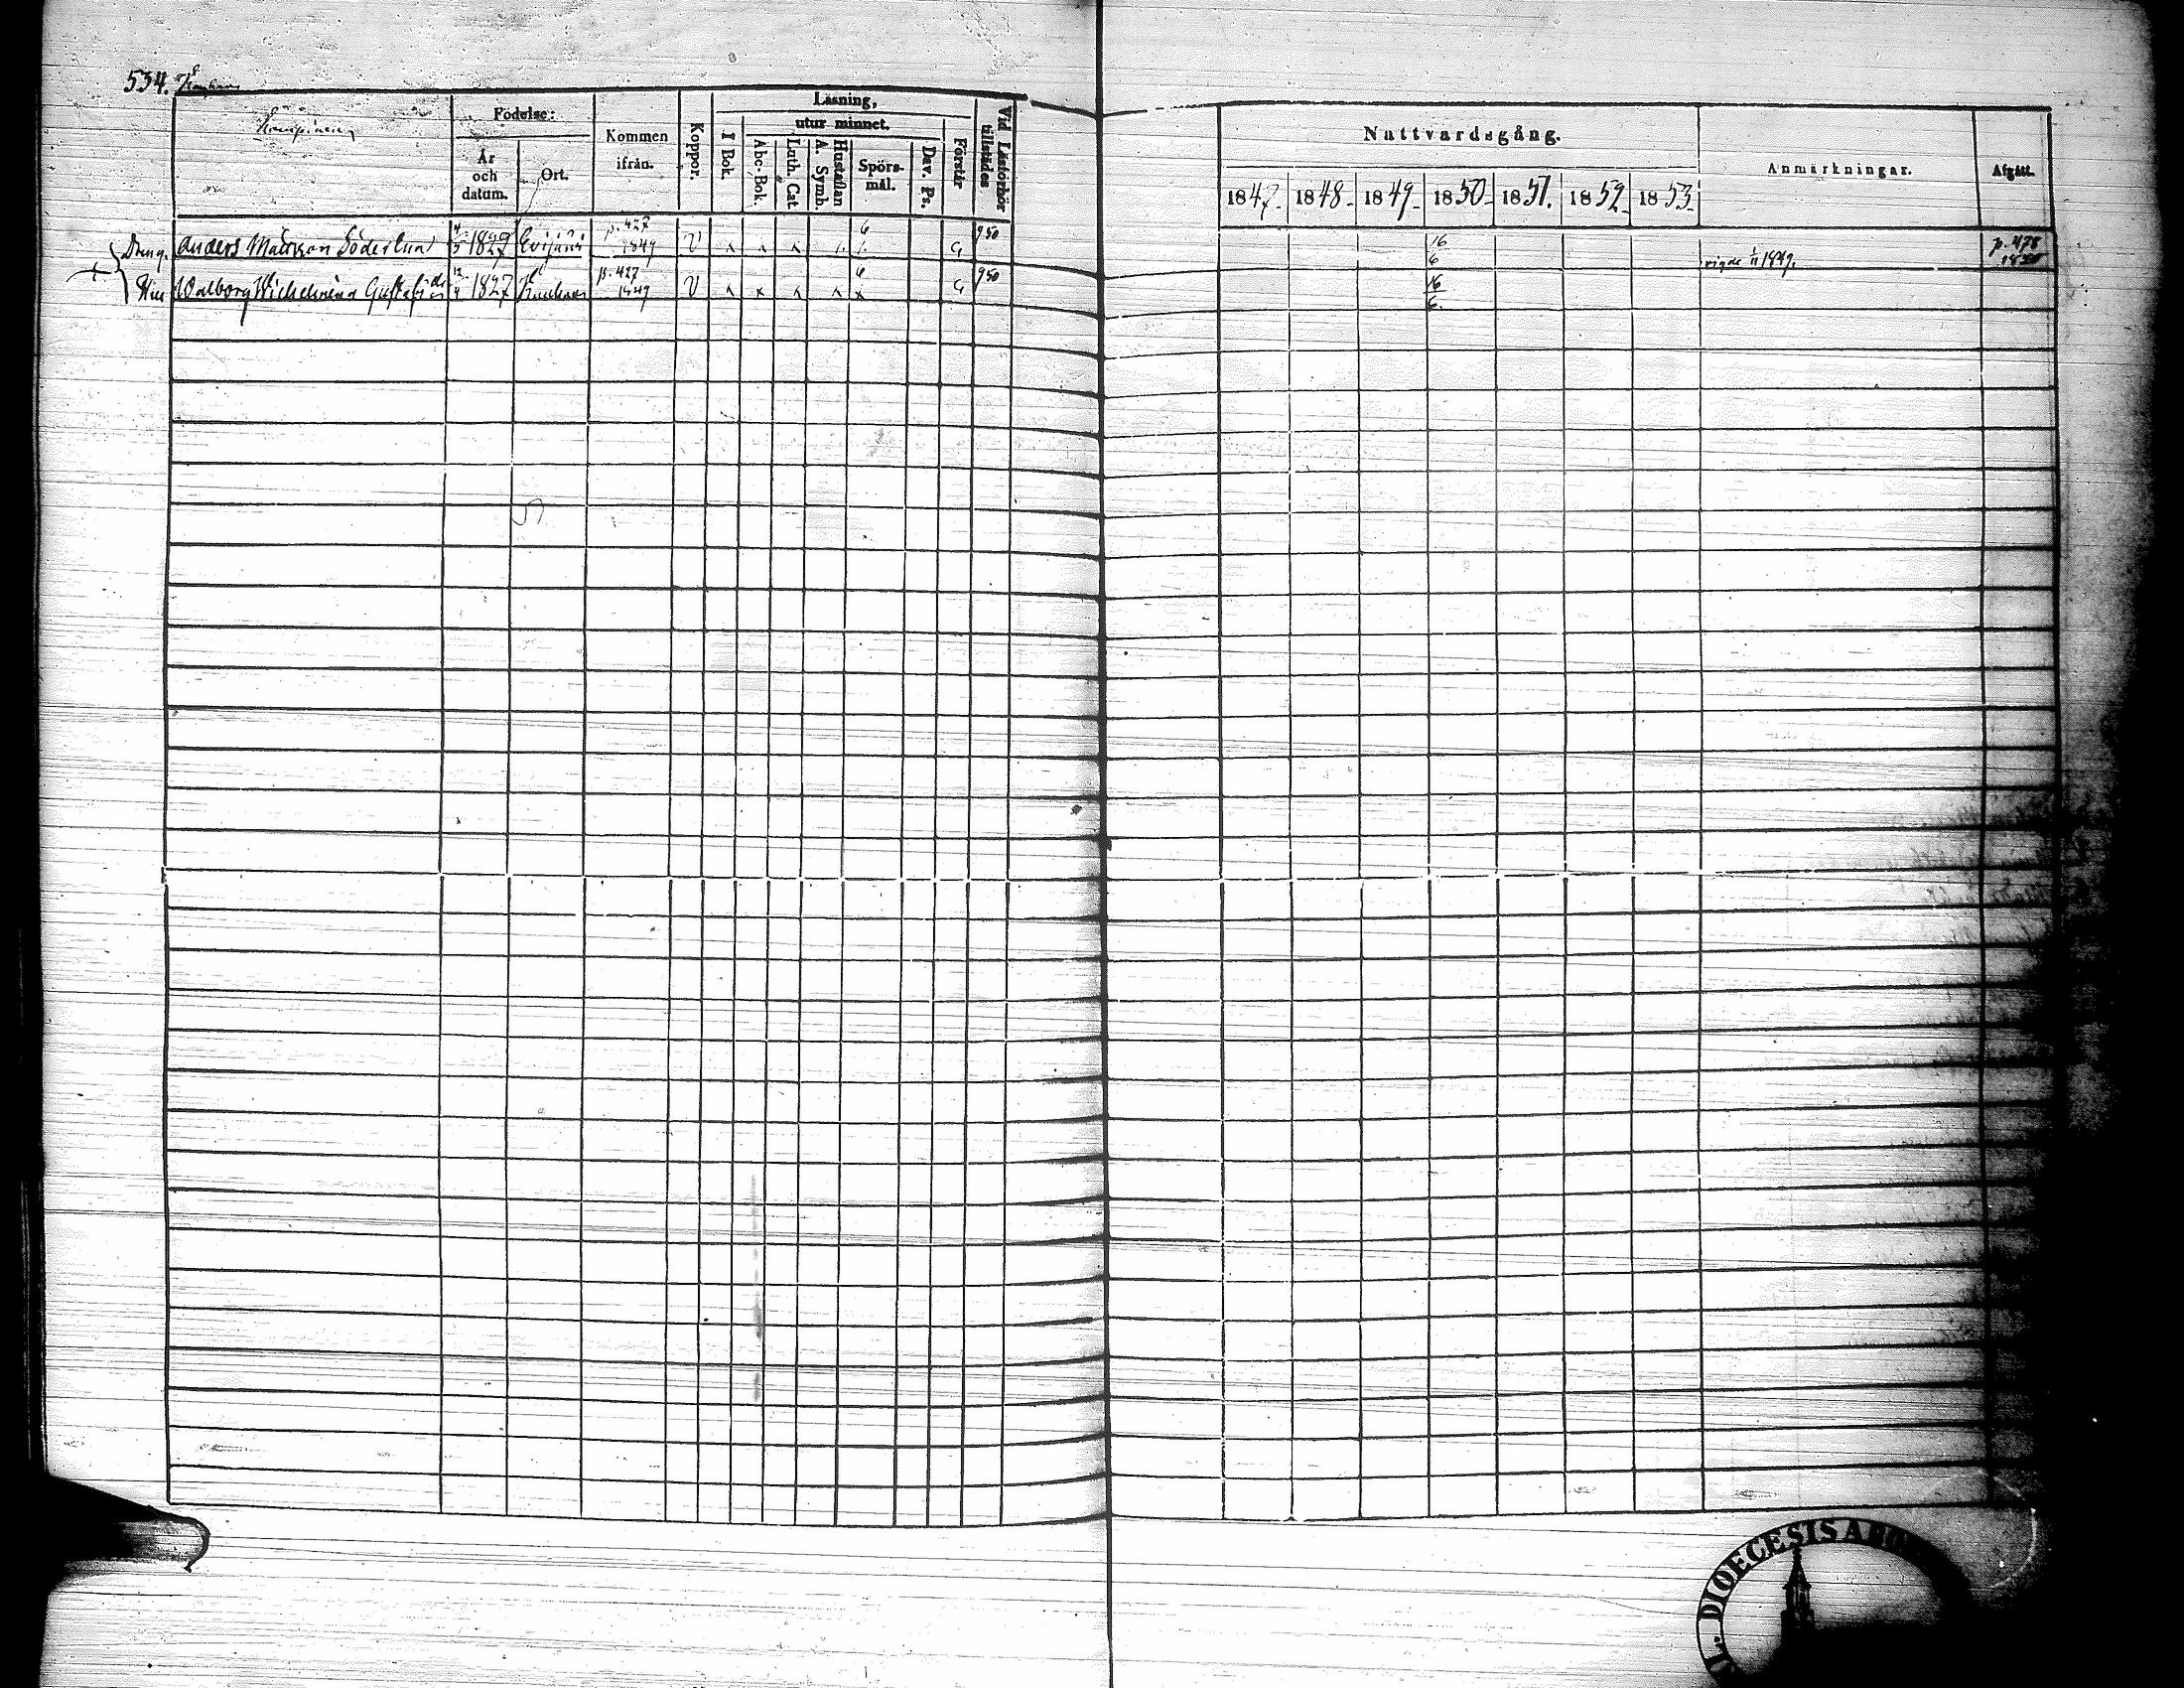 534.
Födelse:
Läsning,
utur minnet.
År och datum.
Ort.
Kommen ifrån.
Koppor.
I Bok.
Abc-Bok.
Luth. Cat.
Hustaflan
A. Symb.
Spörsmål.
Dav. Ps.
Förstår
Vid Läsförhör tillstädes
Nattvardsgång.
1847 1848 1849 1850 1851. 1852 1853
Anmärkningar.
Afgått.
Dreng. Anders Mattsson Söderlund 4/5 1827 p. 427 1849 V 6 G 950 16/6 vigde 1/11 1849. p. 478 1850
Hu Walborg Wilhelmina 12/4 1827 p. 427 1849 V 6 G 950 16/6
DIOECESIS ABO